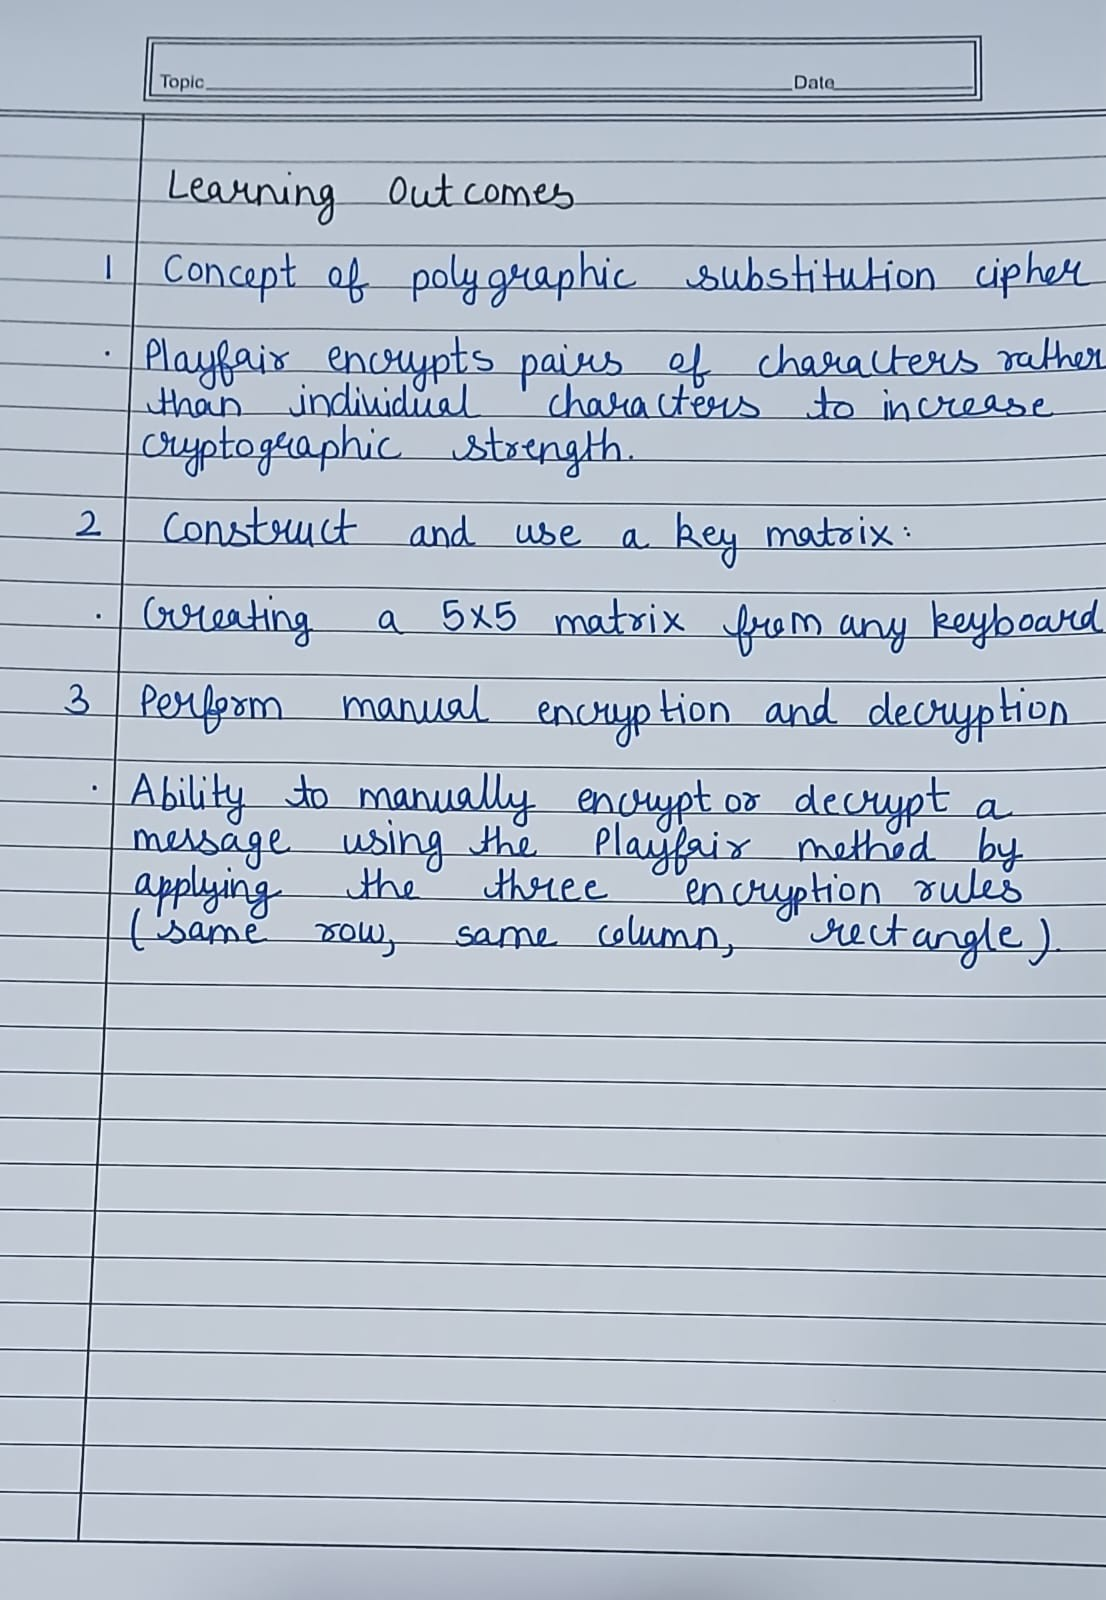 Topic Date
Learning Outcomes
1 Concept of polygraphic substitution cipher
· Playfair encrypts pairs of characters rather
than individual characters to increase
cryptographic strength.
2 Construct and use a key matrix:
· Creating a 5x5 matrix from any keyboard
3 Perform manual encryption and decryption
· Ability to manually encrypt or decrypt a
message using the Playfair method by
applying the three encryption rules
(same row, same column, rectangle).